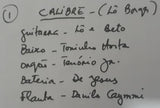 ① CALIBRE - (Lô Borges)
Guitarras - Lô e Beto
Baixo - Toninho Horta
Orgão - Tenório Jr.
Bateria - De Jesus
Flauta - Danilo Caymmi